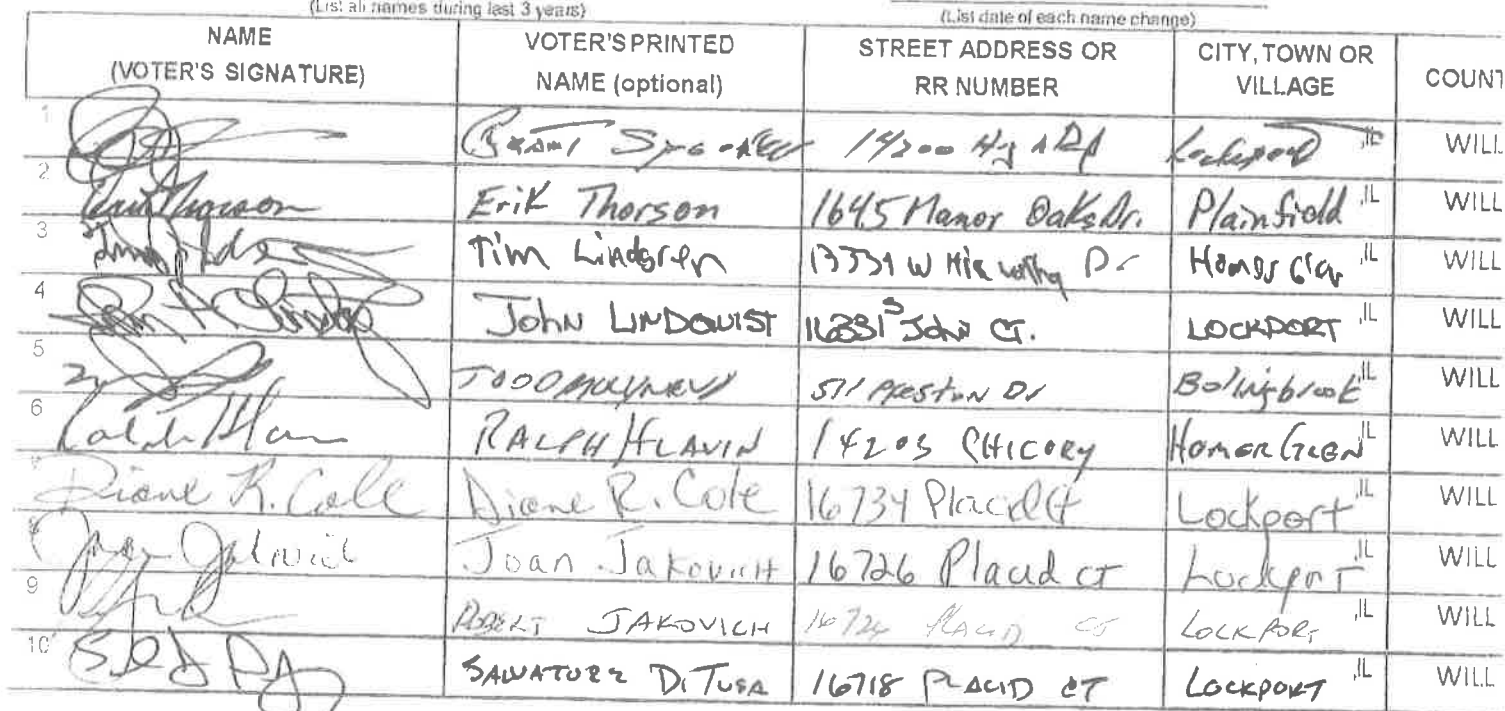 (List all names during last 3 years) (List date of each name change)
NAME (VOTER'S SIGNATURE) VOTER'S PRINTED NAME (optional) STREET ADDRESS OR RR NUMBER CITY, TOWN OR VILLAGE COUNT
1 14200 Lockport ,IL WILL
2 Erik Thorson Erik Thorson 1645 Manor Oaks Dr. Plainfield ,IL WILL
3 Tim Lindgren W Dr Homer Glen ,IL WILL
4 John LINDQUIST 16331 S John CT. LOCKPORT ,IL WILL
5 TODD 511 Preston Dr Bolingbrook ,IL WILL
6 RALPH HLAVIN 14203 CHICORY HOMER GLEN ,IL WILL
7 Diane R. Cole Diane R. Cole 16734 Placid Ct Lockport ,IL WILL
8 Joan Jakovich Joan Jakovich 16726 Placid CT Lockport ,IL WILL
9 ROBERT JAKOVICH 16726 PLACID CT LOCKPORT ,IL WILL
10 SALVATORE DiTUSA 16718 PLACID CT LOCKPORT ,IL WILL